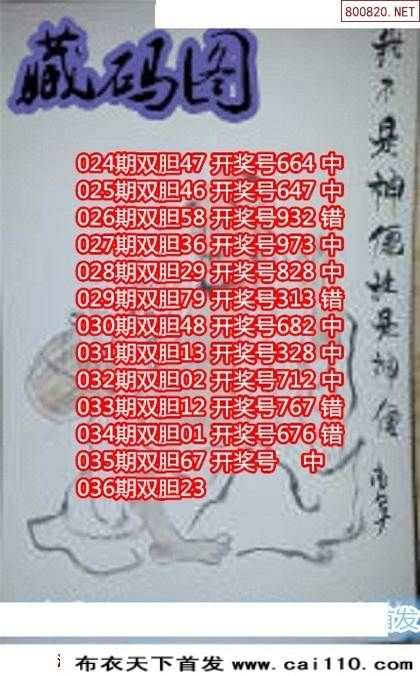 800820.NET
藏码图
024期双胆47 开奖号664 中
025期双胆46 开奖号647 中
026期双胆58 开奖号932 错
027期双胆36 开奖号973 中
028期双胆29 开奖号828 中
029期双胆79 开奖号313 错
030期双胆48 开奖号682 中
031期双胆13 开奖号328 中
032期双胆02 开奖号712 中
033期双胆12 开奖号767 错
034期双胆01 开奖号676 错
035期双胆67 开奖号 中
036期双胆23
我不是神仙壮是神仙
发
布衣天下首发 www.cai110.com